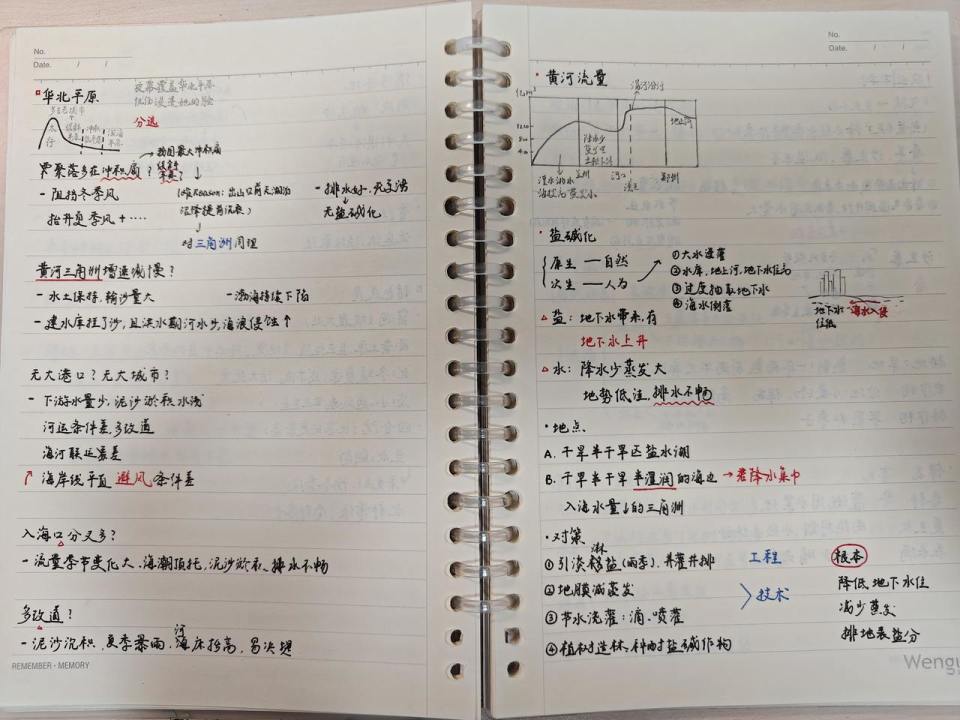 No.
Date. / /
华北平原
分选
太行
聚落多在冲积扇？
→ 我国最大冲积扇
- 阻挡冬季风
抬升夏季风 + ····
(唯一Reason: 出山口前无湖泊
沉降提前沉泥)
- 排水好，无旱涝
↓
无盐碱化
↓
对三角洲同理
黄河三角洲增速减慢？
- 水土保持，输沙量大
- 渤海持续下陷
- 建水库拦了沙，且洪水期河水少，海浪侵蚀↑
无大港口？无大城市？
- 下游水量少，泥沙淤积水浅
河运条件差，多改道
海河联运差
海岸线平直 避风条件差
入海口分叉多？
- 流量季节变化大、海潮顶托，泥沙淤积、排水不畅
多改道？
- 泥沙沉积，夏季暴雨，河床抬高，易决堤
REMEMBER · MEMORY
No.
Date. / /
· 黄河流量
地上河
兰州
河口
郑州
· 盐碱化
原生 — 自然
次生 — 人为
①大水漫灌
②水库，地上河，地下水位高
③过度抽取地下水
④海水倒灌
地下水位低
海水入侵
△ 盐：地下水带来，有
地下水上升
△ 水：降水少蒸发大
地势低洼，排水不畅
· 地点
A. 干旱半干旱区盐水湖
B. 干旱半干旱半湿润的海边 → 若降水集中
入海水量↓的三角洲
· 对策
①引淡淋盐(雨季)，井灌井排
工程
根本
②地膜减蒸发
技术
降低地下水位
③节水浇灌：滴、喷灌
减少蒸发
④植树造林，种耐盐碱作物
排地表盐分
Wengu